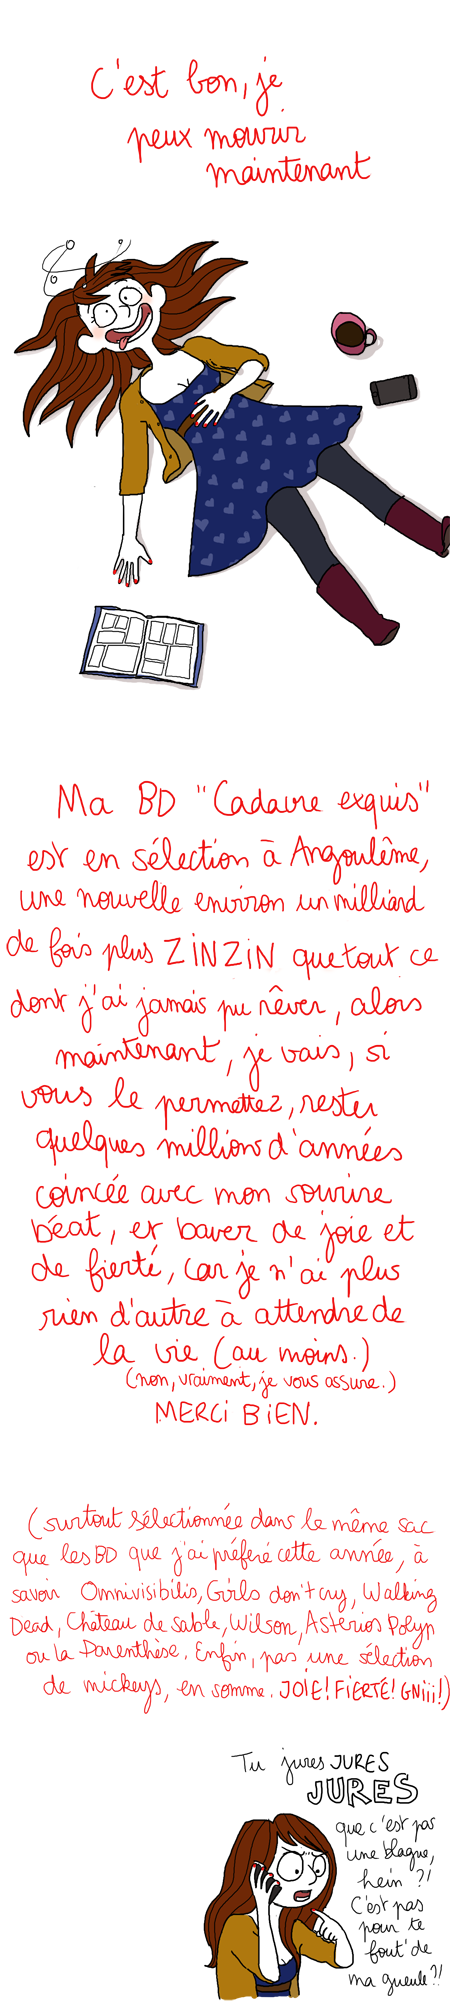 C'est bon, je
peux mourir
maintenant
Ma BD "Cadavre exquis"
est en sélection à Angoulême,
une nouvelle environ un milliard
de fois plus ZINZIN que tout ce
dont j'ai jamais pu rêver, alors
maintenant, je vais, si
vous le permettez, rester
quelques millions d'années
coincée avec mon sourire
béat, et baver de joie et
de fierté, car je n'ai plus
rien d'autre à attendre de
la vie (au moins.)
(non, vraiment, je vous assure.)
MERCI BIEN.
(surtout sélectionnée dans le même sac
que les BD que j'ai préféré cette année, à
savoir Omnivisibilis, Girls don't cry, Walking
Dead, Château de sable, Wilson, Asterios Polyp
ou la Parenthèse. Enfin, pas une sélection
de mickeys, en somme. JOIE! FIERTÉ! GNiii!)
Tu jures JURES
JURES
que c'est pas
une blague,
hein ?!
C'est pas
pour te
fout' de
ma gueule?!